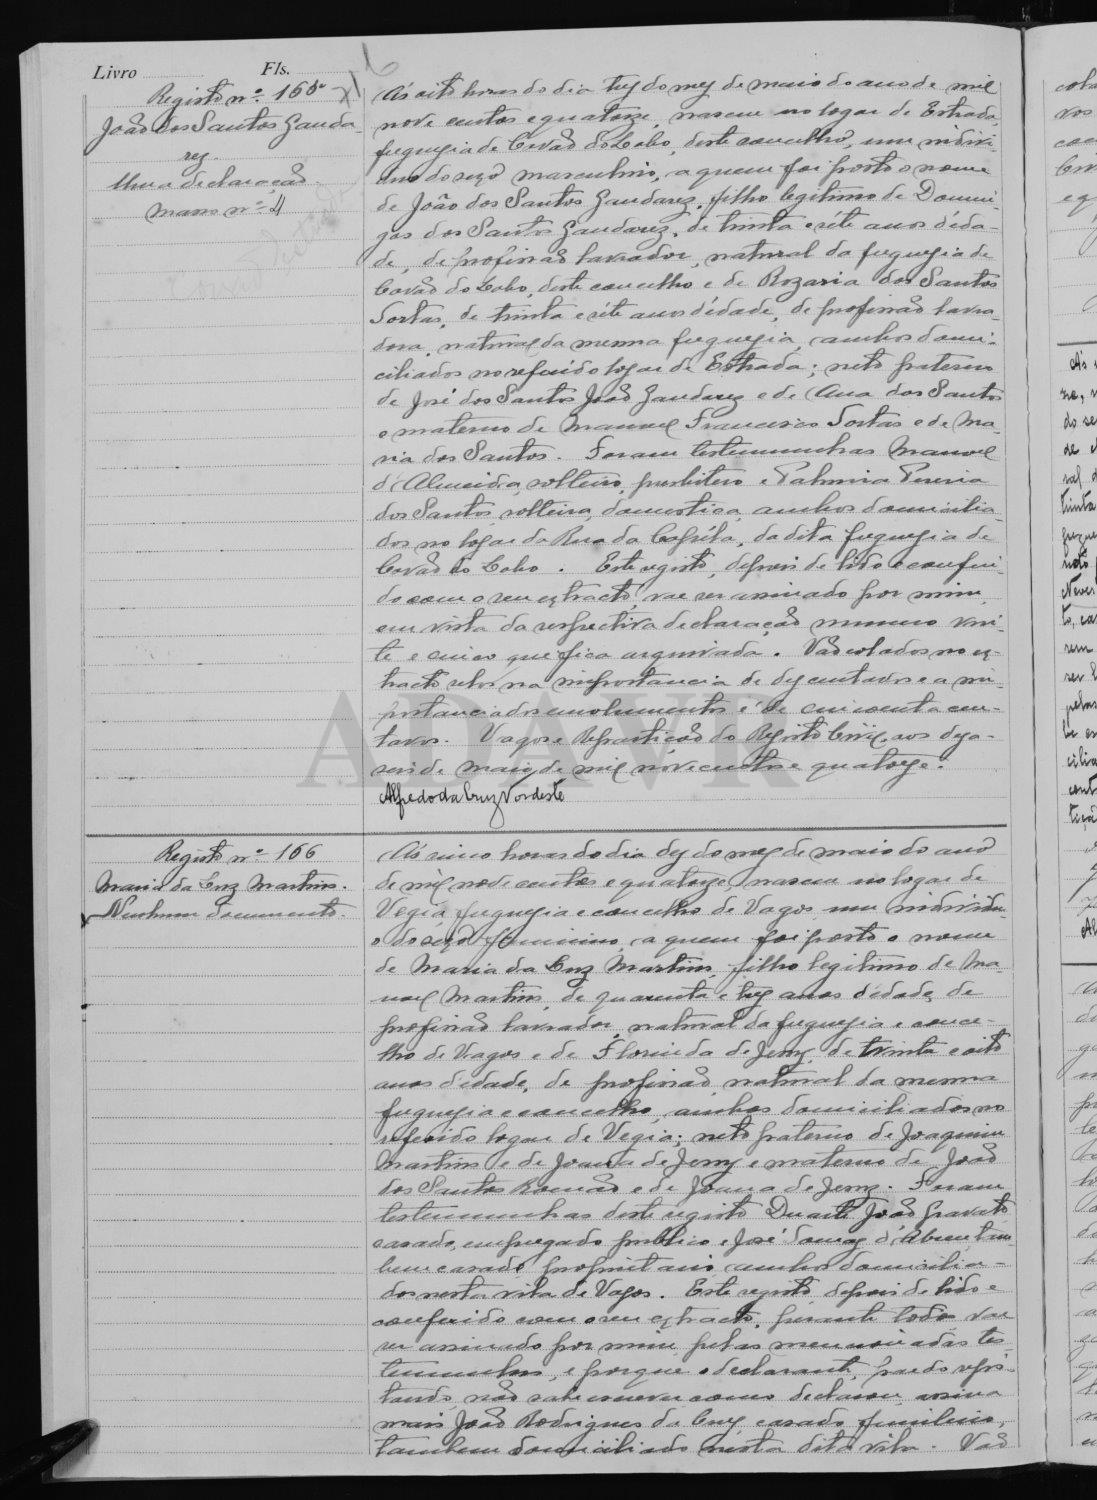 Livro Fls.
Registo nº 165
João dos Santos Ganda
rez.
Uma declaração
maço nº 4
Ás oito horas do dia trez do mez de maio do ano de mil
nove centos e quatorze, nasceu no logar de Estrada,
freguezia de Covão do Lobo, deste concelho, um indivi-
duo do sexo masculino, a quem foi posto o nome
de João dos Santos Gandarez, filho legitimo de Domin-
gos dos Santos Gandarez, de trinta e séte anos d'éda-
de, de profissão lavrador, natural da freguezia de
Covão do Lobo, deste concelho e de Rozaria dos Santos
Sortas, de trinta e séte anos d'édade, de profissão lavra-
dora, natural da mesma freguezia, ambos domi-
ciliados no referido logar de Estrada; neto paterno
de José dos Santos João Gandarez e de Ana dos Santos
e materno de Manoel Francisco Sortas e de Ma-
ria dos Santos. Foram testemunhas Manoel
d'Almeida, solteiro, presbitero e Palmira Pereira
dos Santos, solteira, domestica, ambos domicilia-
dos no logar da Rua da Capéla, da dita freguezia de
Covão do Lobo. Este registo, depois de lido e conferi-
do com o seu extracto, vae ser assinado por mim,
em vista da respectiva declaração numero vin-
te e cinco que fica arquivada. Vão colados no ex-
tracto selos na importancia de dez centavos e a im-
portancia dos emolumentos é de cincoenta cen-
tavos. Vagos e Repartição do Registo Civil, aos deza-
seis de maio de mil nóve centos e quatorze.
Alfredo da Cruz Nordeste
ADAVR
Registo nº 166
Maria da Cruz Martins.
Nenhum documento.
Ás cinco horas do dia dez do mez de maio do ano
de mil nove centos e quatorze, nasceu no logar de
Vegia, freguezia e concelho de Vagos, um individu-
o do sexo feminino, a quem foi posto o nome
de Maria da Cruz Martins, filho legitimo de Ma-
noel Martins, de quarenta e trez anos d'édade, de
profissão lavrador, natural da freguezia e conce-
lho de Vagos e de Florinda de Jezuz, de trinta e oito
anos d'édade, de profissão, natural da mesma
freguezia e concelho, ambos domiciliados no
referido logar de Vegia; neto paterno de Joaquim
Martins e de Joana de Jezuz e materno de João
dos Santos Romão e de Joana de Jezuz. Foram
testemunhas deste registo Duarte João Gravato,
casado, empregado publico e José Tomaz d'Abreu, tam-
bem casado, proprietario, ambos domicilia-
dos nesta vila de Vagos. Este registo, depois de lido e
conferido com o seu extracto, perante todos vae
ser assinado por mim, pelas mencionadas tes-
temunhas, e porque o declarante, pae do regis-
tando, não sabe escrever como declarou, assina
mais João Rodrigues da Cruz, casado, funileiro,
tambem domiciliado nesta dita vila. Vão